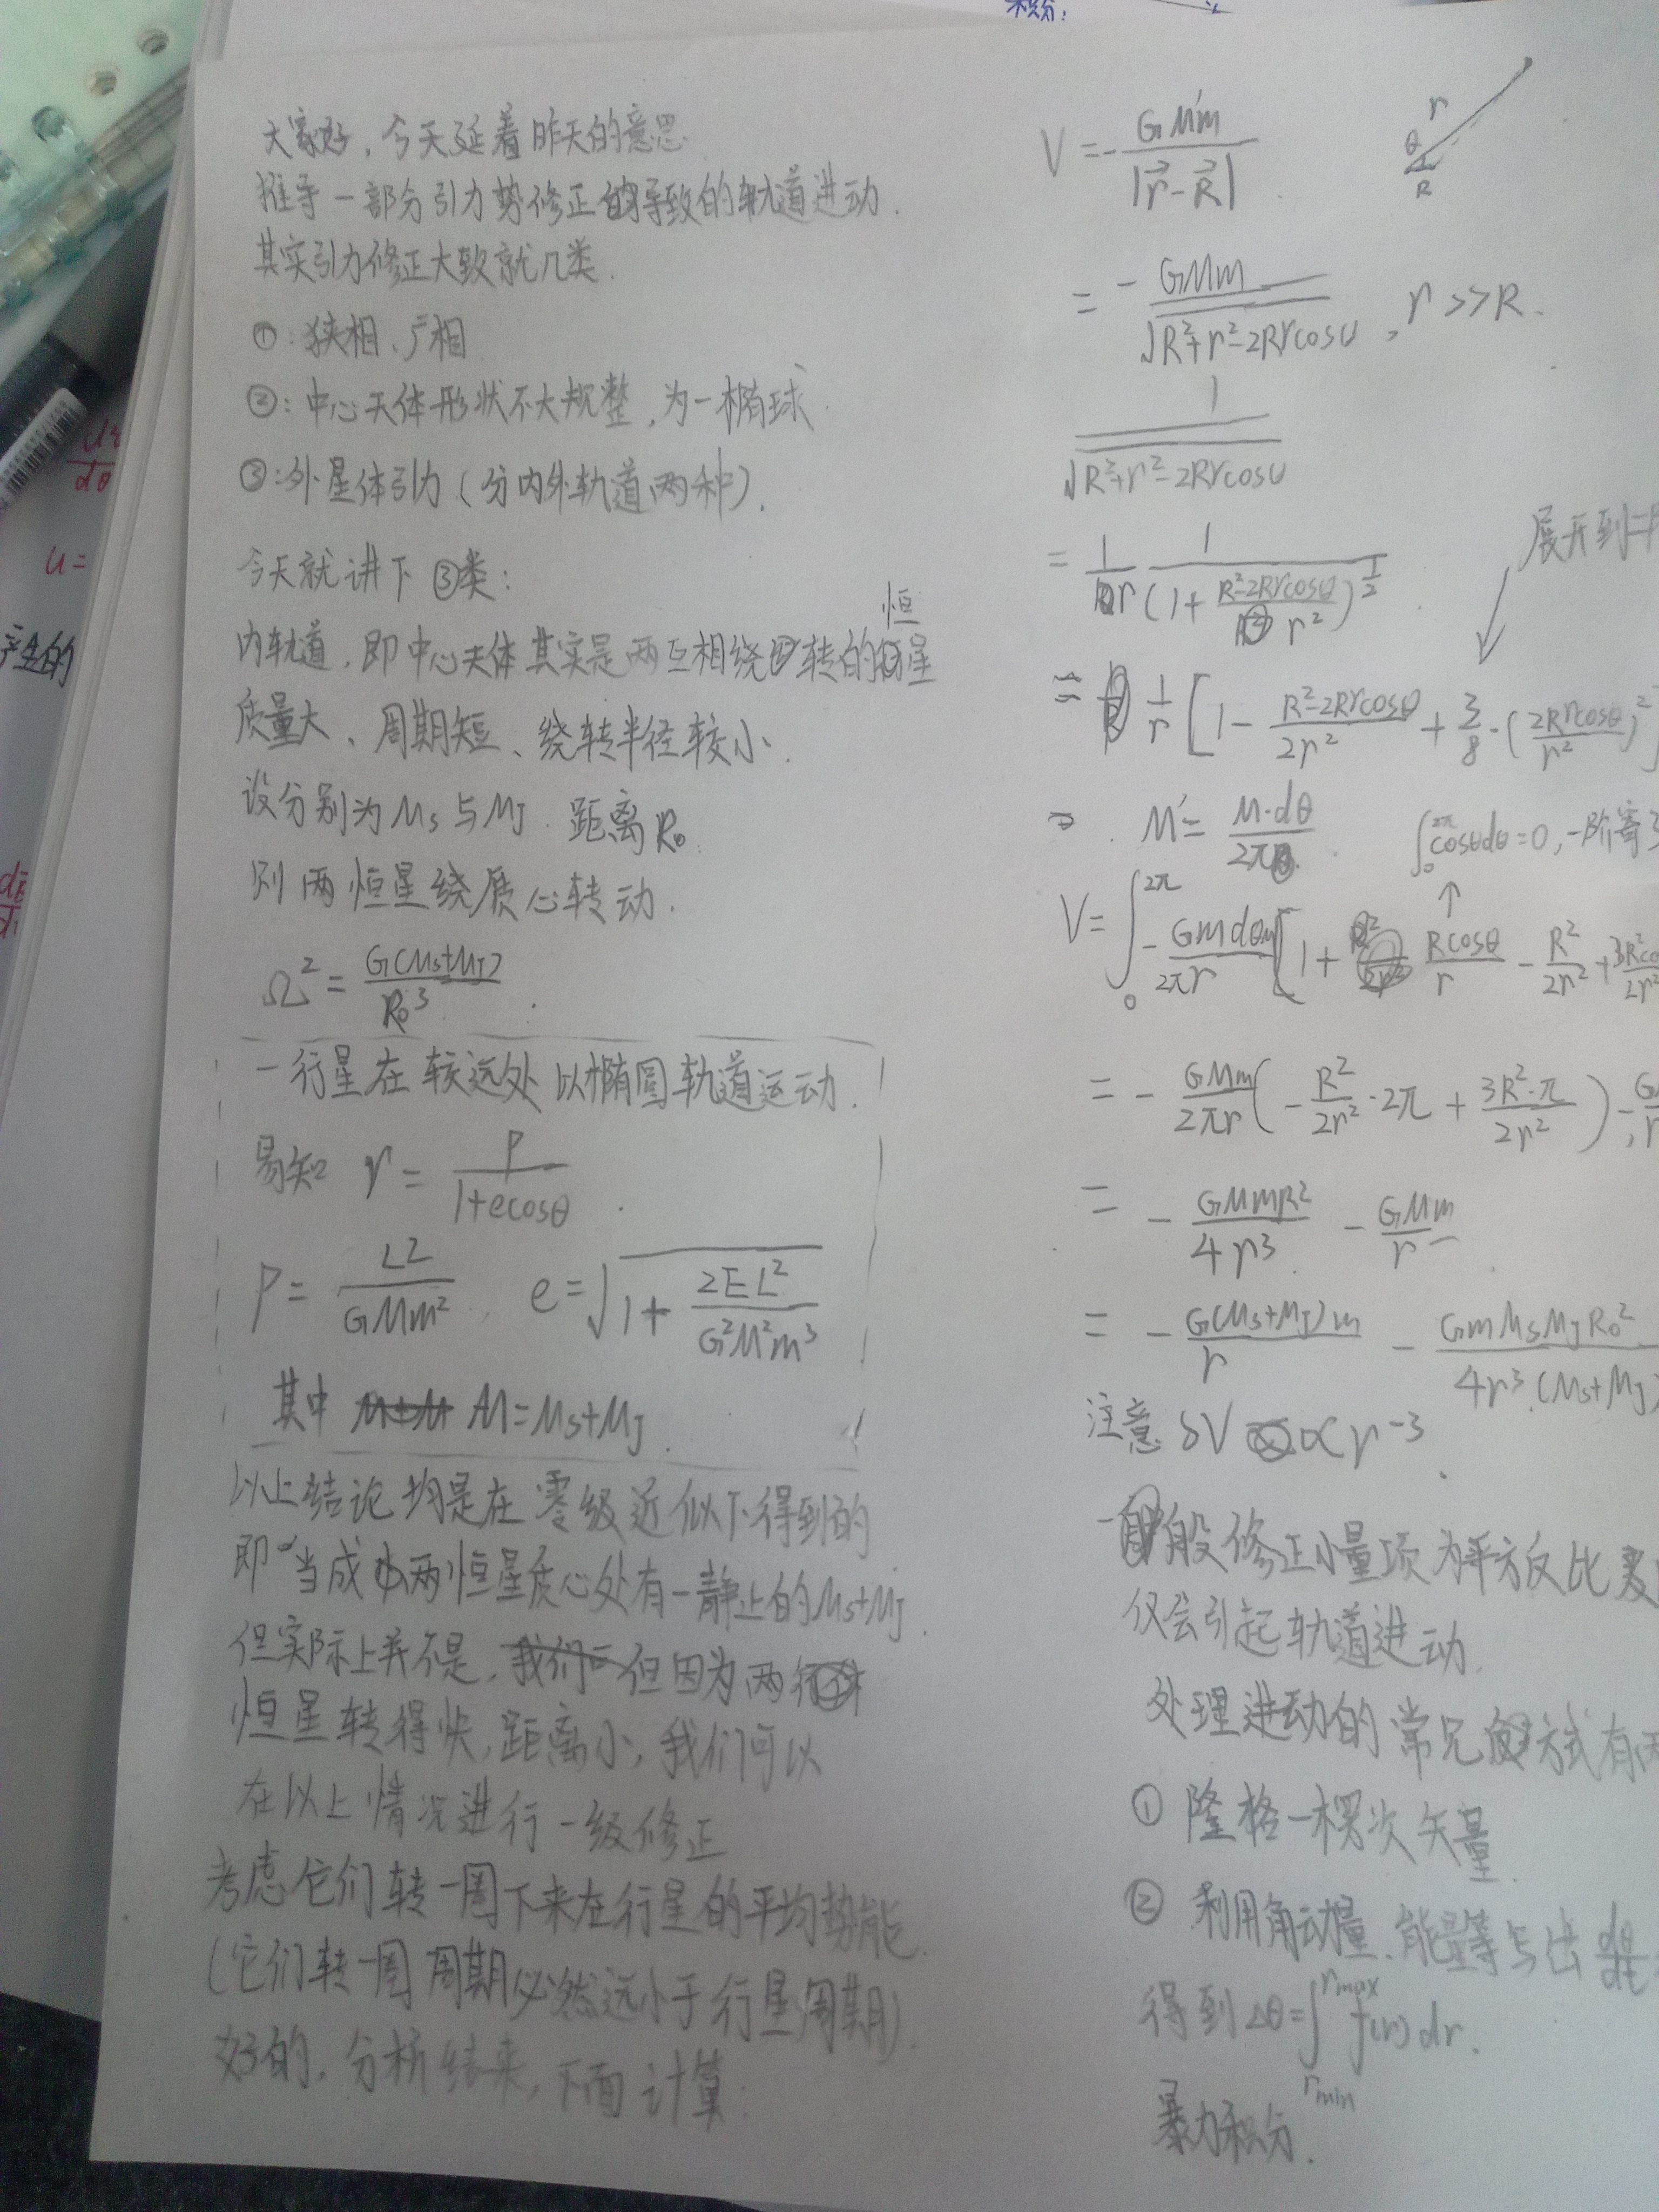 大家好，今天延着昨天的意思
推导一部分引力势修正的导致的轨道进动.
其实引力修正大致就几类.
①:狭相、广相
②:中心天体形状不大规整,为一椭球.
③:外星体引力(分内外轨道两种).
今天就讲下③类:
内轨道,即中心天体其实是两互相绕转的恒星
质量大、周期短、绕转半径较小.
设分别为 Ms 与 MJ. 距离 R₀
则两恒星绕质心转动.
Ω² = G(Ms+MJ)/R₀³
一行星在较远处以椭圆轨道运动.
易知 r = P/(1+ecosθ).
P = L²/(GMm²), e = √(1+2EL²/(G²M²m³))
其中 M=Ms+MJ.
以上结论均是在零级近似下得到的
即当成两恒星质心处有一静止的Ms+MJ.
但实际上并不是,但因为两
恒星转得快,距离小,我们可以
在以上情况进行一级修正
考虑它们转一周下来在行星的平均势能.
(它们转一周周期必然远小于行星周期).
好的,分析结束,下面计算:
积分:
V = -GM'm/|r⃗-R⃗|
r
θ
R
= -GMm/√(R²+r²-2Rrcosθ), r>>R.
1/√(R²+r²-2Rrcosθ)
= 1/r · 1/(1+(R²-2Rrcosθ)/r²)^(1/2)
展开到二
= 1/r [1-(R²-2Rrcosθ)/(2r²)+3/8·(2Rrcosθ/r²)²]
⇒ M' = M·dθ/2π. ∫₀^2π cosθdθ=0,一阶
V = ∫₀^2π -GmdθM/(2πr) [1+Rcosθ/r-R²/(2r²)+3R²co/(2r²
= -GMm/(2πr) (-R²/(2r²)·2π+3R²·π/(2r²)) - G/r
= -GMmR²/(4r³) - GMm/r
= -G(Ms+MJ)m/r - GmMsMJR₀²/(4r³(Ms+MJ)
注意 δV ∝ r⁻³.
一般修正小量项为平方反比
仅会引起轨道进动.
处理进动的常见方式有两
① 隆格一楞次矢量
② 利用角动量、能量等写出 dθ/dt
得到 Δθ=∫_rmin^rmax f(r)dr.
暴力积分.
产生的
u=
dθ